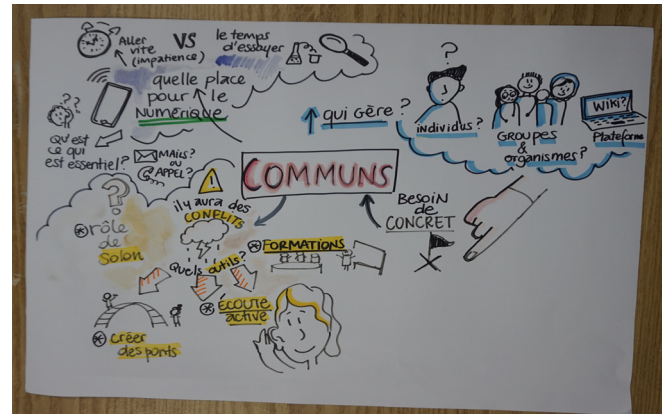 Aller
vite
(impatience)
VS
le temps
d'essayer
quelle place
pour le
NUMÉRIQUE
??
Qu'est
ce qui
est essentiel?
MAILS?
ou
@ APPEL?
qui Gère?
?
individus?
GROUPES
&
organismes?
WIKI?
Plateforme
COMMUNS
BESOIN
de
CONCRET
?
rôle
de
Solon
!
il y aura des
CONFLITS
Quels outils?
FORMATIONS
ÉCOUTE
active
créer
des ponts